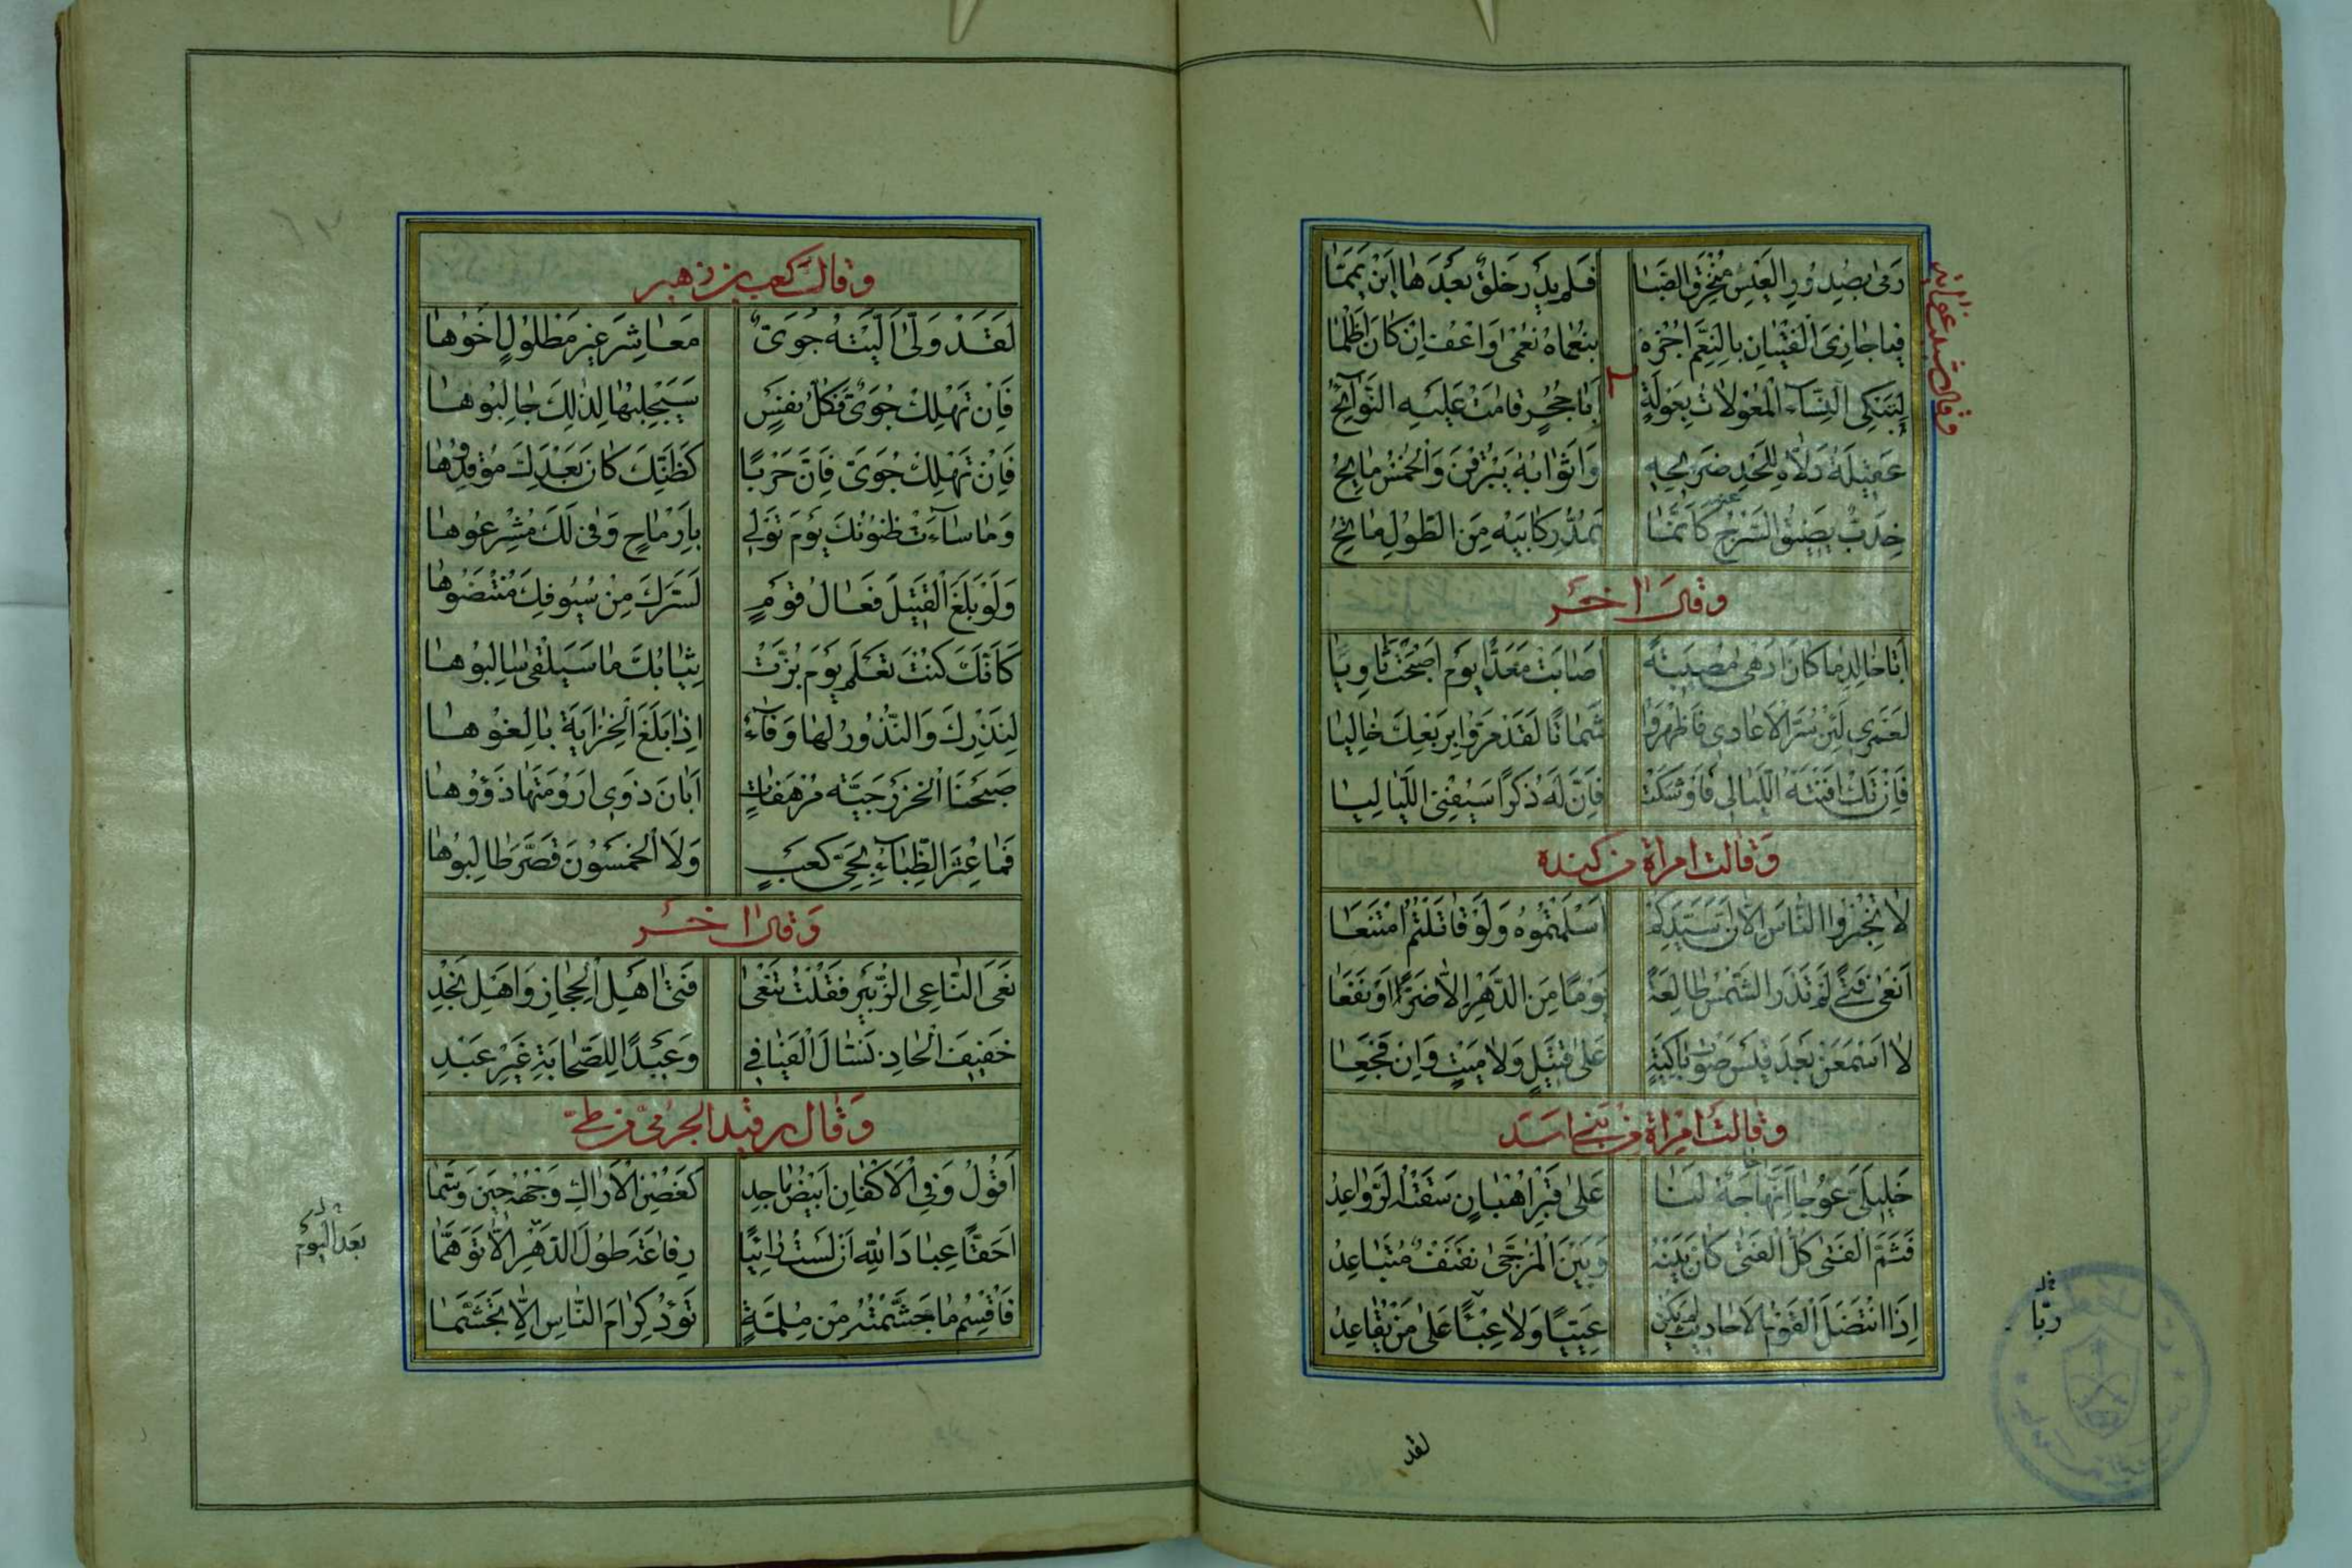 رَمَى بِصُدُورِ الْعِيسِ مُنْخَرَقَ الصَّبَا فَلَمْ يَدْرِ خَلْقٌ بَعْدَهَا أَيْنَ يَمَّمَا
فَيَا جَازِيَ الْفِتْيَانِ بِالنِّعَمِ اجْزِهِ بِنُعْمَاهُ نُعْمَى وَاعْفُ إِنْ كَانَ أَظْلَمَا
لِتَبْكِي النِّسَاءُ الْمُعْوِلَاتُ بِعَوْلَةٍ أَبَا حُجُرٍ قَامَتْ عَلَيْهِ النَّوَائِحُ
عَقِيلَةُ دَلَّاهُ لِلَحْدِ ضَرِيحِهِ وَأَثْوَابُهُ يَبْرُقْنَ وَالْخِمْسُ مَايِحُ
خِدَبٌّ يَضِيقُ السَّرْجُ عَنْهُ كَأَنَّمَا يَمُدُّ رِكَابَيْهِ مِنَ الطُّولِ مَاتِحُ
وَقَالَ آخَرُ
أَبَا خَالِدٍ مَا كَانَ أَدْهَى مُصِيبَةً أَصَابَتْ مَعَدًّا يَوْمَ أَصْبَحْتَ ثَاوِيًا
لَعَمْرِي لَئِنْ سُرَّ الْأَعَادِي فَأَظْهَرُوا شَمَاتًا لَقَدْ مَرُّوا بِرَبْعِكَ خَالِيَا
فَإِنْ تَكُ أَفْنَتْهُ اللَّيَالِي فَأَوْشَكَتْ فَإِنَّ لَهُ ذِكْرًا سَيُفْنِي اللَّيَالِيَا
وَقَالَتِ امْرَأَةٌ مِنْ كِنْدَةَ
لَا تُخْبِرُوا النَّاسَ إِلَّا أَنَّ سَيِّدَكُمْ أَسْلَمْتُمُوهُ وَلَوْ قَاتَلْتُمُ امْتَنَعَا
أَنْعَى فَتًى لَمْ تَذُرَّ الشَّمْسُ طَالِعَةً يَوْمًا مِنَ الدَّهْرِ إِلَّا ضَرَّ أَوْ نَفَعَا
لَا أَسْمَعَنْ بَعْدَ قَيْسٍ صَوْتَ بَاكِيَةٍ عَلَى قَتِيلٍ وَلَا مَيْتٍ وَإِنْ فَجَعَا
وَقَالَتِ امْرَأَةٌ مِنْ بَنِي أَسَدٍ
خَلِيلَيَّ عُوجَا إِنَّهَا حَاجَةٌ لَنَا عَلَى قَبْرِ أُهْبَانٍ سَقَتْهُ الرَّوَاعِدُ
فَثَمَّ الْفَتَى كُلُّ الْفَتَى كَانَ بَيْنَهُ وَبَيْنَ الْمُزَجَّى نَفْنَفٌ مُتَبَاعِدُ
إِذَا انْتَضَلَ الْقَوْمُ الْأَحَادِيثَ لَمْ يَكُنْ عَيِيًّا وَلَا عِبْئًا عَلَى مَنْ يُقَاعِدُ
رَبًّا
لقد
وَقَالَ كَعْبُ بْنُ زُهَيْرٍ
لَقَدْ وَلَّى أَلِيَّتَهُ جُوَيٌّ مَعَاشِرَ غَيْرَ مَطْلُولٍ أَخُوهَا
فَإِنْ تَهْلِكْ جُوَيُّ فَكُلُّ نَفْسٍ سَيَجْلِبُهَا لِذَلِكَ جَالِبُوهَا
فَإِنْ تَهْلِكْ جُوَيُّ فَإِنَّ حَرْبًا كَظَنِّكَ كَانَ بَعْدَكَ مُوقِدُوهَا
وَمَا سَاءَتْ ظُنُونُكَ يَوْمَ تُولِي بِأَرْمَاحٍ وَفَى لَكَ مُشْرِعُوهَا
وَلَوْ بَلَغَ الْقَتِيلَ فَعَالُ قَوْمٍ لَسَرَّكَ مِنْ سُيُوفِكَ مُنْتَضُوهَا
كَأَنَّكَ كُنْتَ تَعْلَمُ يَوْمَ بُزَّتْ ثِيَابُكَ مَا سَيَلْقَى سَالِبُوهَا
لِنَذْرِكَ وَالنُّذُورُ لَهَا وَفَاءٌ إِذَا بَلَغَ الْخَزَايَةَ بَالِغُوهَا
صَبَحْنَا الْخَزْرَجِيَّةَ مُرْهَفَاتٍ أَبَانَ ذَوِي أَرُومَتِهَا ذَوُوهَا
فَمَا عُتِرَ الظِّبَاءُ بِحَيِّ كَعْبٍ وَلَا الْخَمْسُونَ قَصَّرَ طَالِبُوهَا
وَقَالَ آخَرُ
نَعَى النَّاعِي الزُّبَيْرَ فَقُلْتُ تَنْعَى فَتَى أَهْلِ الْحِجَازِ وَأَهْلِ نَجْدِ
خَفِيفَ الْحَاذِ نَسَّالَ الْفَيَافِي وَعَبْدًا لِلصَّحَابَةِ غَيْرَ عَبْدِ
وَقَالَ رُقَيْبَةُ الْجَرْمِيُّ مِنْ طَيِّئٍ
أَقُولُ وَفِي الْأَكْفَانِ أَبْيَضُ مَاجِدٌ كَغُصْنِ الْأَرَاكِ وَجْهُهُ حِينَ وَسَّمَا
أَحَقًّا عِبَادَ اللهِ أَنْ لَسْتُ رَائِيًا رِفَاعَةَ طُولَ الدَّهْرِ إِلَّا تَوَهُّمَا
بَعْدَ الْيَوْمِ
فَأُقْسِمُ مَا جَشَّمْتُهُ مِنْ مُلِمَّةٍ تَؤُدُ كِرَامَ النَّاسِ إِلَّا تَجَشَّمَا